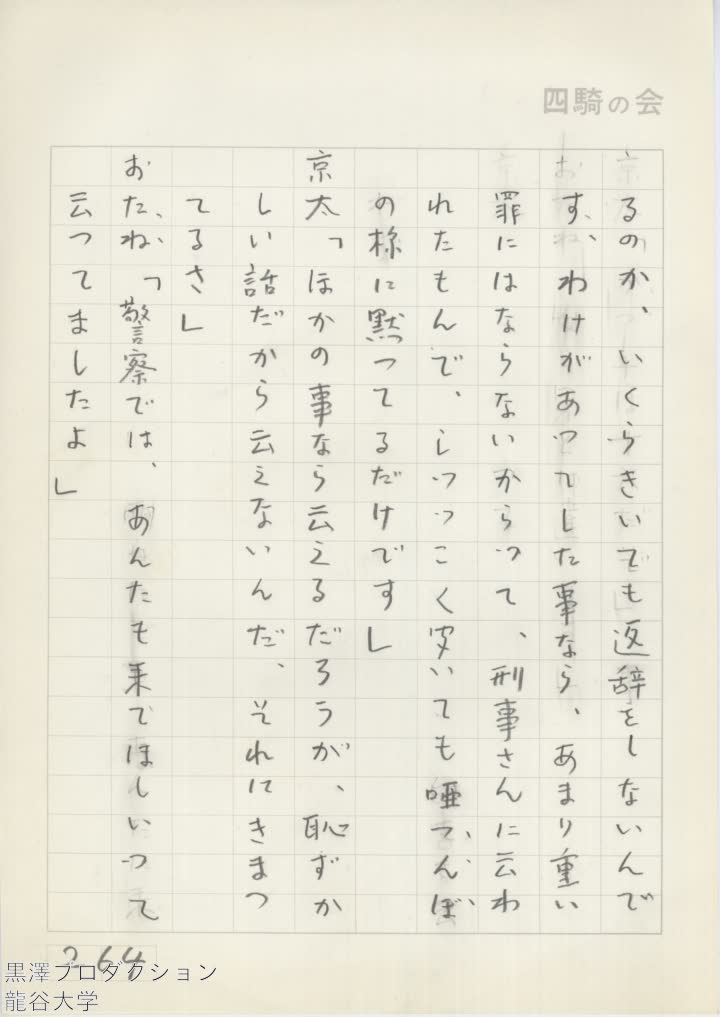 四騎の会
るのか、いくらきいても返辞をしないんで
す、わけがあってした事なら、あまり重い
罪にはならないからって、刑事さんに云わ
れたもんで、しつっこく突いても唖つんぼ
の様に黙ってるだけです」
京太「ほかの事なら云えるだろうが、恥ずか
しい話だから云えないんだ、それにきまっ
てるさ」
おたね「警察では、あんたも来てほしいって
云ってましたよ」
264
黒澤プロダクション
龍谷大学